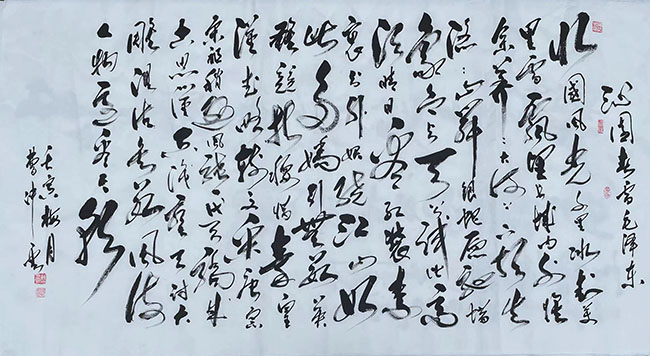 沁园春雪毛泽东
北國風光千里冰封萬
里雪飘望长城内外惟
余莽莽大河上下顿失
滔滔山舞银蛇原驰蜡
象欲与天公试比高
须晴日看红装素
裹分外妖娆江山如
此多娇引無数英
雄竞折腰惜秦皇
漢武略输文采唐宗
宋祖稍逊风骚一代天骄成
吉思汗只识弯弓射大
雕俱往矣数风流
人物还看今朝
壬寅梅月